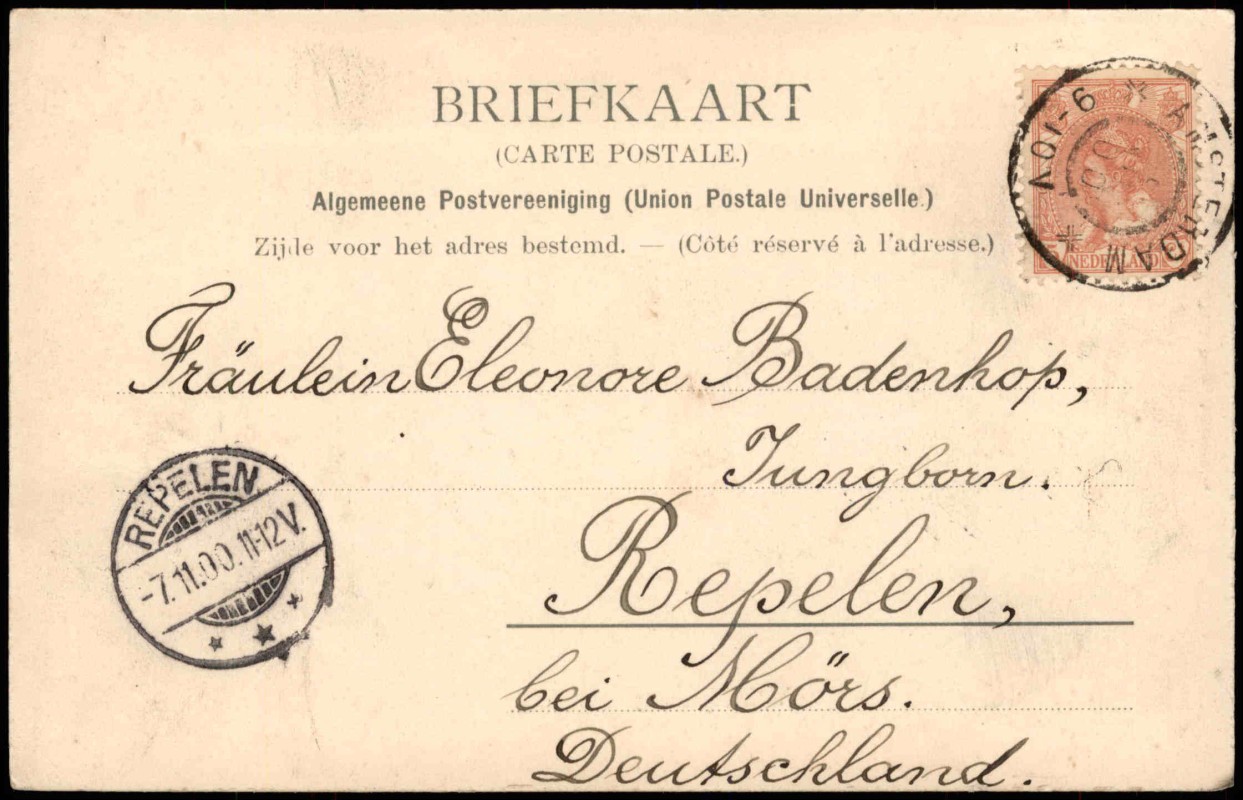 BRIEFKAART
(CARTE POSTALE.)
Algemeene Postvereeniging (Union Postale Universelle.)
Zijde voor het adres bestemd. — (Côté réservé à l'adresse.)
AMSTERDAM
NEDERLAND
Fräulein Eleonore Badenhop,
Jungborn.
Repelen,
bei Mörs.
Deutschland.
REPELEN
-7.11.00.11-12V.